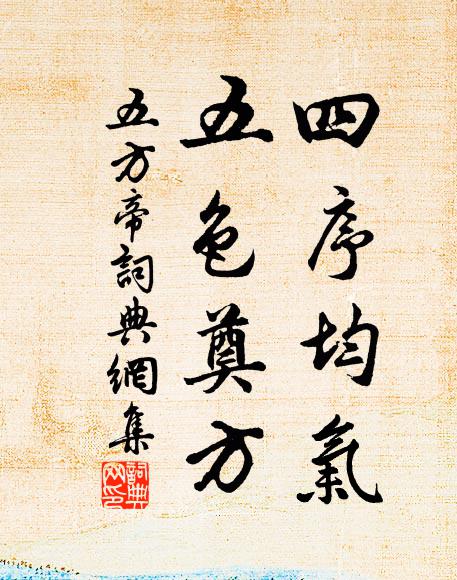 四序均氣
五色奠方
五方帝詞典網集
詞典网印